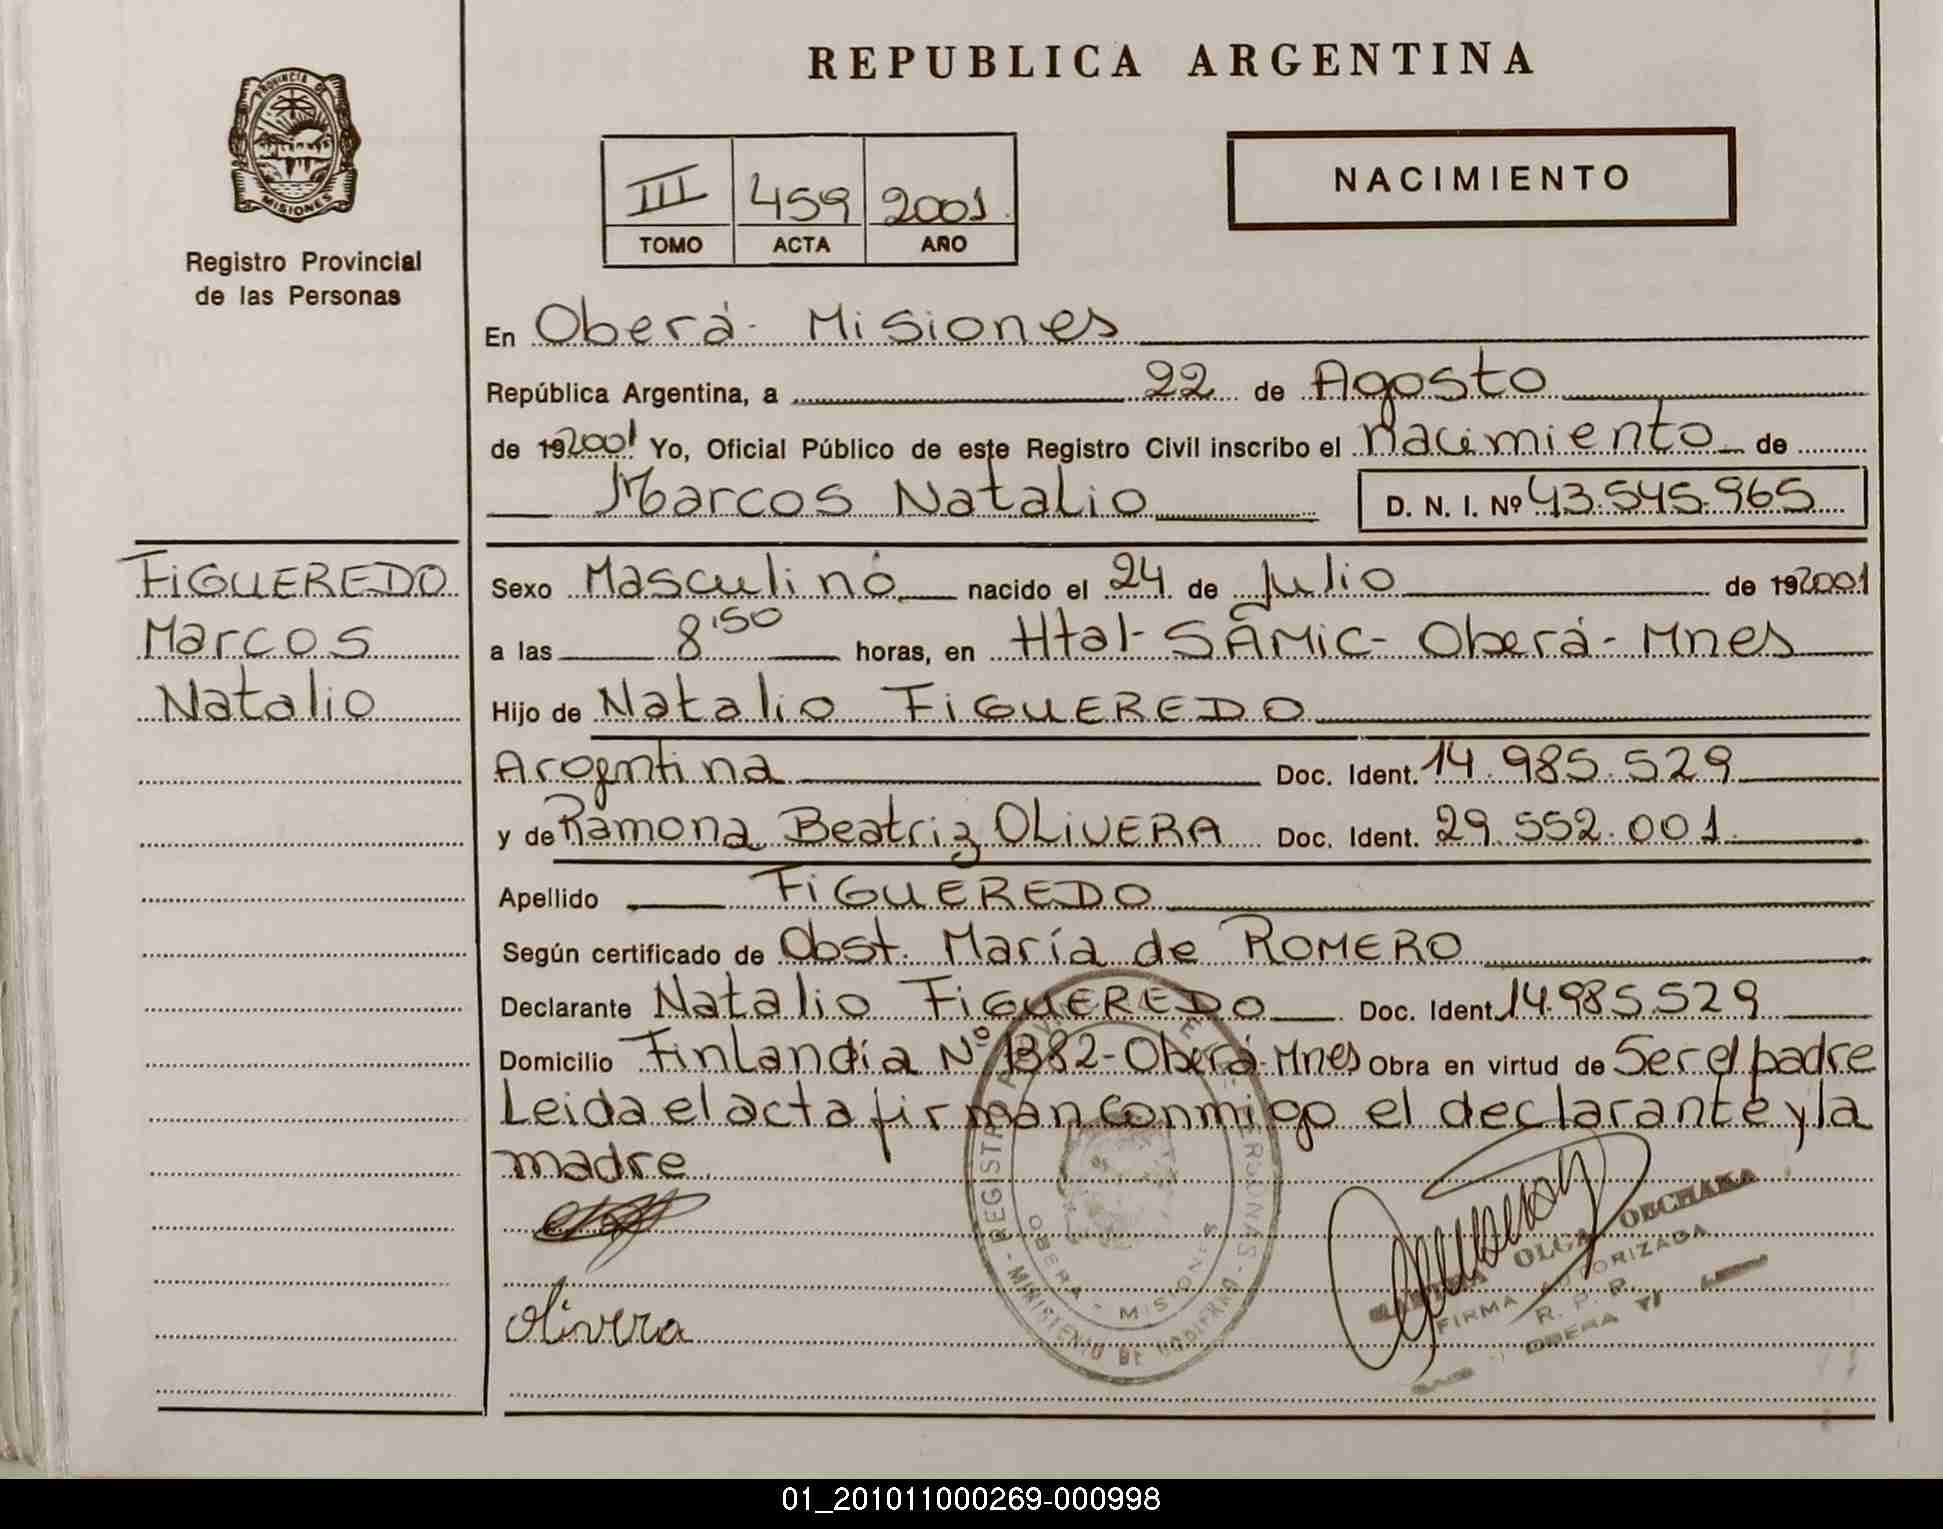 REPUBLICA ARGENTINA
PROVINCIA DE
MISIONES
Registro Provincial
de las Personas
III 459 2001
TOMO ACTA AÑO
NACIMIENTO
En Oberá - Misiones
República Argentina, a 22 de Agosto
de 192001 Yo, Oficial Público de este Registro Civil inscribo el nacimiento de
Marcos Natalio D. N. I. Nº 43.545.965
FiGUEREDO
Marcos
Natalio
Sexo Masculino nacido el 24 de Julio de 192001
a las 8'50 horas, en Htal-SAMiC- Oberá- Mnes
Hijo de Natalio FiGUEREDO
Argentina Doc. Ident. 14.985.529
y de Ramona Beatriz OLiVERA Doc. Ident. 29.552.001
Apellido FiGUEREDO
Según certificado de Obst. María de ROMERO
Declarante Natalio FiGUEREDO Doc. Ident. 14.985.529
Domicilio Finlandia Nº 1382-Oberá-Mnes Obra en virtud de Ser el padre
Leida el acta firman conmigo el declarante y la
madre
Olivera
OBERA - MISIONES
OLGA OBCHAKA
FIRMA AUTORIZADA
R. P. P.
OBERA
01_201011000269-000998